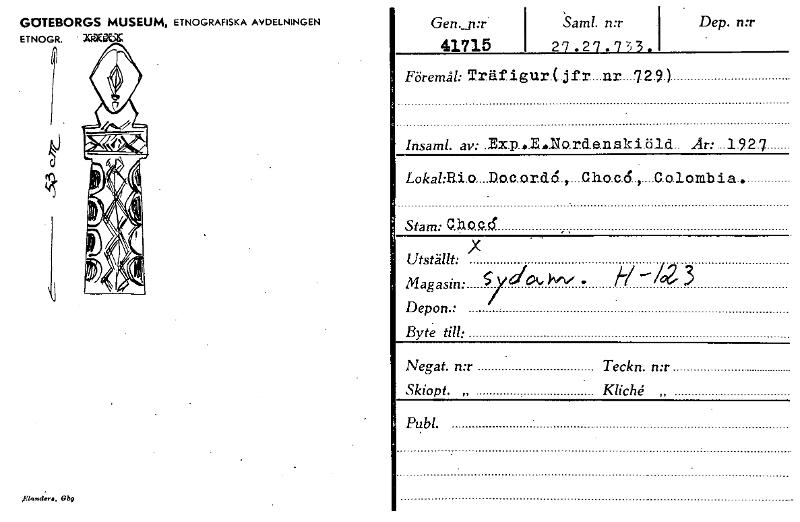 GÖTEBORGS MUSEUM, ETNOGRAFISKA AVDELNINGEN
ETNOGR.
53 cm
Elanders, Gbg
Gen. n:r Saml. n:r Dep. n:r
41715 27.27.733.
Föremål: Träfigur(jfr nr 729)
Insaml. av: Exp.E.Nordenskiöld År: 1927
Lokal: Rio Docordó, Chocó, Colombia.
Stam: Chocó
Utställt: X
Magasin: sydam. H-123
Depon.:
Byte till:
Negat. n:r Teckn. n:r
Skiopt. „ Kliché „
Publ.